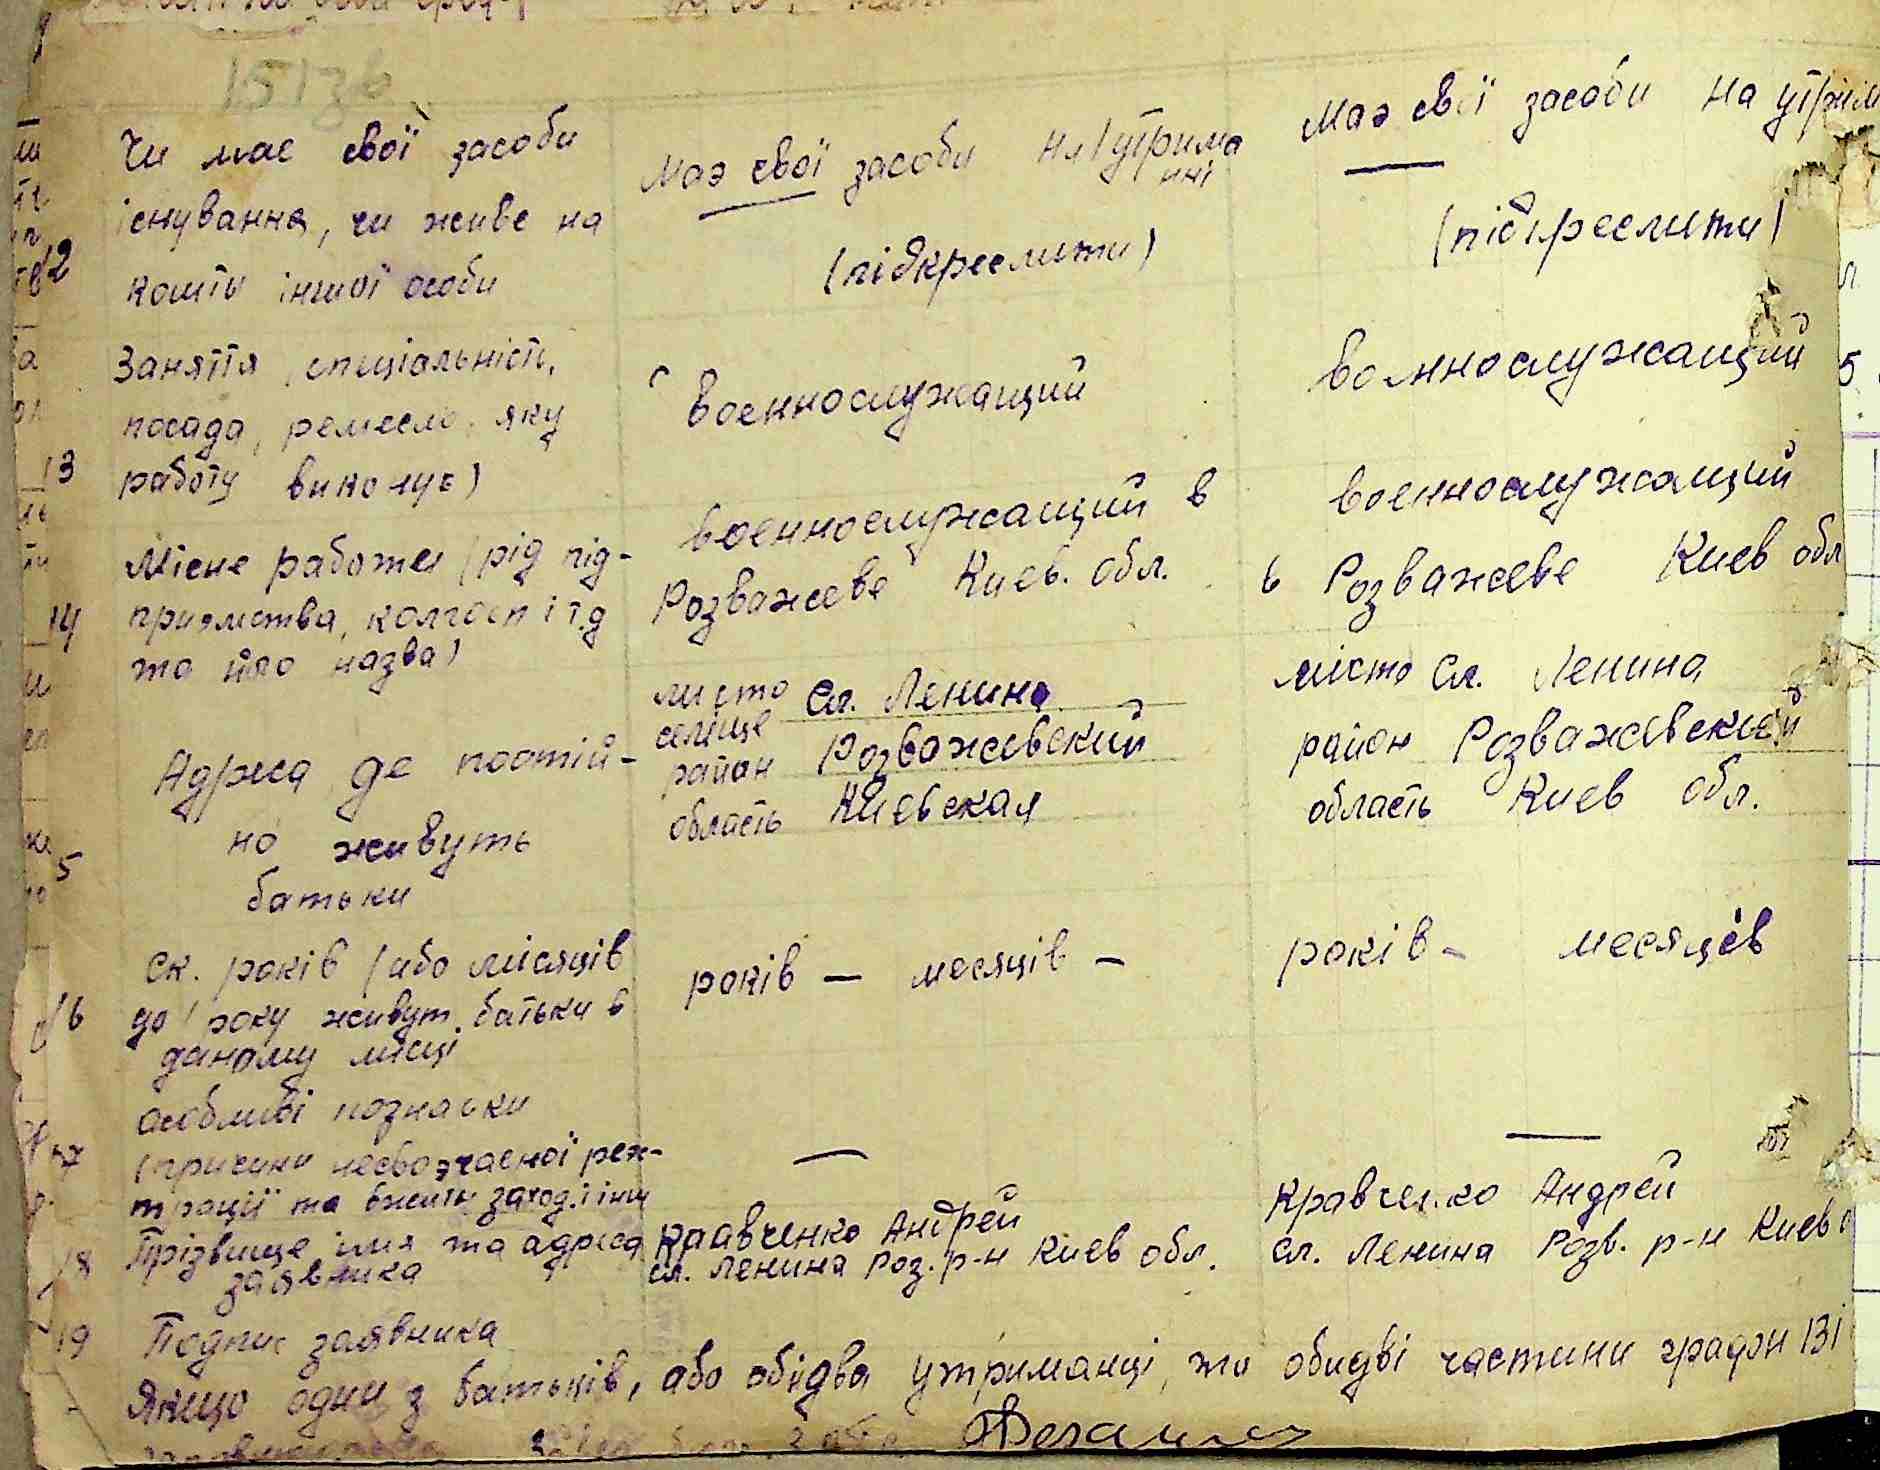 15136
12 Чи має свої засоби
існування, чи живе на
кошти іншої особи
Маэ свої засоби на утрима
нні
(підкреслити)
Маэ свої засоби на утрим
(підкреслити)
13 Заняття, спеціальність,
посада, ремесло, яку
работу виконує)
военнослужащий
военнослужащий
14 Місце работы (рід під-
приэмства, колгосп і т.д
та його назва)
военнослужащий в
Розважеве Киев. обл.
военнослужащий
в Розважеве Киев обл
5 Адреса де постій-
но живуть
батьки
місто
селище Сл. Ленина
район Розважевский
область Киевская
місто Сл. Ленина
район Розважевский
область Киев обл.
16 Ск. років (або місяців
до 1 року живут батьки в
даному місці
років — месяців —
років — месяцев
17 Особливі познаки
(причини несвоэчасної реж-
трації та вжиті заход. і інш
—
—
18 Прізвище імя та адреса
заявника
Кравченко Андрей
сл. Ленина Роз. р-н Киев обл.
Кравченко Андрей
Сл. Ленина Розв. р-н Киев о
19 Подпис заявника
Якщо один з батьків, або обидва утриманці, то обидві частини графи 13 і